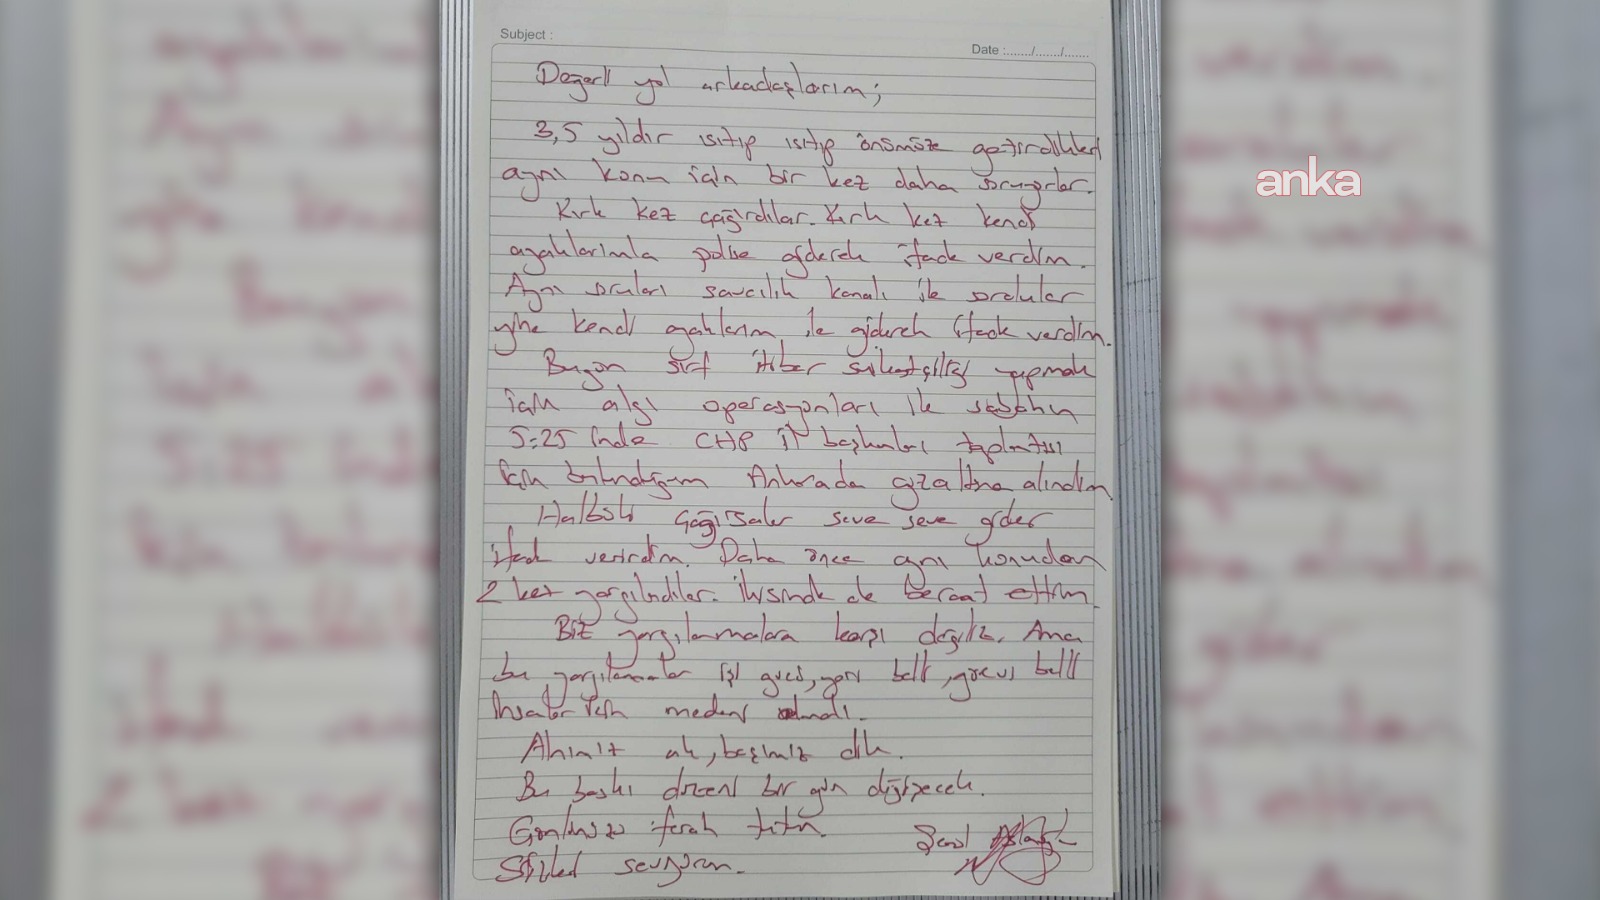 Subject :
Date :......./......./.......
Değerli yol arkadaşlarım;
3,5 yıldır ısıtıp ısıtıp önümüze getirdikleri
aynı konu için bir kez daha soruyorlar.
Kırk kez çağırdılar. Kırk kez kendi
ayaklarımla polise giderek ifade verdim.
Aynı soruları savcılık kanalı ile sordular
yine kendi ayaklarım ile giderek ifade verdim.
Bugün sırf itibar suikastçiliği yapmak
için algı operasyonları ile sabahın
5:25 inde CHP il başkanları toplantısı
için bulunduğum Ankarada gözaltına alındım.
Halbuki çağırsalar seve seve gider
ifade verirdim. Daha önce aynı konudan
2 kez yargılandılar. İkisinde de beraat ettim.
Biz yargılanmalara karşı değiliz. Ama
bu yargılamalar işi gücü, yeri belli, görevi belli
insanlar için medeni olmalı.
Alnımız ak, başımız dik.
Bu baskı düzeni bir gün değişecek.
Gönlünüzü ferah tutun.
Sizleri seviyorum.
anka